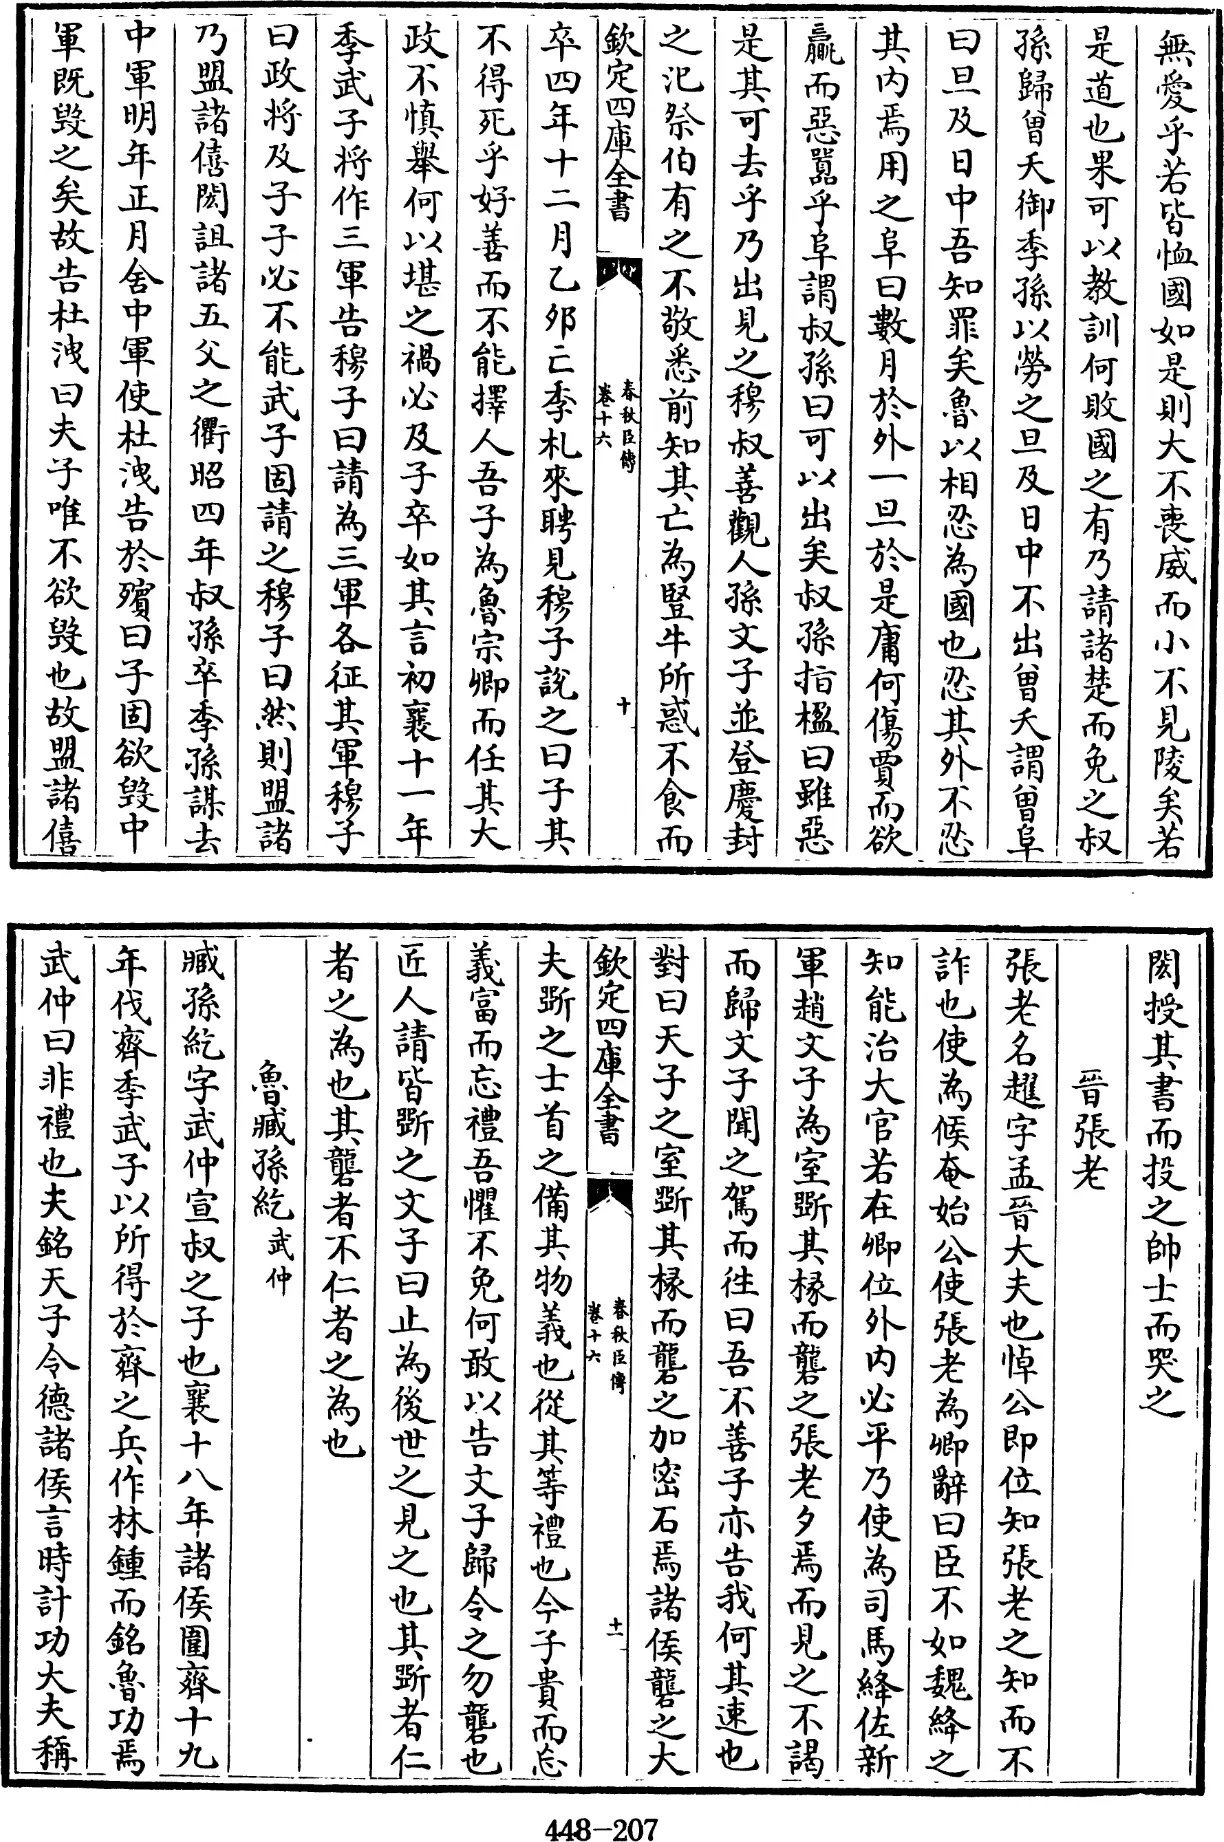 無愛乎若皆恤國如是則大不喪威而小不見陵矣若
是道也果可以教訓何敗國之有乃請諸楚而免之叔
孫歸曾夭御季孫以勞之旦及日中不出曾夭謂曾阜
曰旦及日中吾知罪矣魯以相忍為國也忍其外不忍
其内焉用之阜曰數月於外一旦於是庸何傷賈而欲
贏而惡嚚乎阜謂叔孫曰可以出矣叔孫指楹曰雖惡
是其可去乎乃出見之穆叔善觀人孫文子並登慶封
之汜祭伯有之不敬悉前知其亡為豎牛所惑不食而
欽定四庫全書
春秋臣傳
卷十六
十
卒四年十二月乙夘亡季札來聘見穆子說之曰子其
不得死乎好善而不能擇人吾子為魯宗卿而任其大
政不慎舉何以堪之禍必及子卒如其言初襄十一年
季武子將作三軍告穆子曰請為三軍各征其軍穆子
曰政將及子子必不能武子固請之穆子曰然則盟諸
乃盟諸僖閎詛諸五父之衢昭四年叔孫卒季孫謀去
中軍明年正月舍中軍使杜洩告於殯曰子固欲毀中
軍既毀之矣故告杜洩曰夫子唯不欲毀也故盟諸僖
閎授其書而投之帥士而哭之
晉張老
張老名趯字孟晉大夫也悼公即位知張老之知而不
詐也使為候奄始公使張老為卿辭曰臣不如魏絳之
知能治大官若在卿位外内必平乃使為司馬絳佐新
軍趙文子為室斲其椽而礱之張老夕焉而見之不謁
而歸文子聞之駕而徃曰吾不善子亦告我何其速也
對曰天子之室斲其椽而礱之加密石焉諸侯礱之大
欽定四庫全書
春秋臣傳
卷十六
十一
夫斲之士首之備其物義也從其等禮也今子貴而忘
義富而忘禮吾懼不免何敢以告文子歸令之勿礱也
匠人請皆斲之文子曰止為後世之見之也其斲者仁
者之為也其礱者不仁者之為也
魯臧孫紇武仲
臧孫紇字武仲宣叔之子也襄十八年諸侯圍齊十九
年伐齊季武子以所得於齊之兵作林鍾而銘魯功焉
武仲曰非禮也夫銘天子令德諸侯言時計功大夫稱
448-207